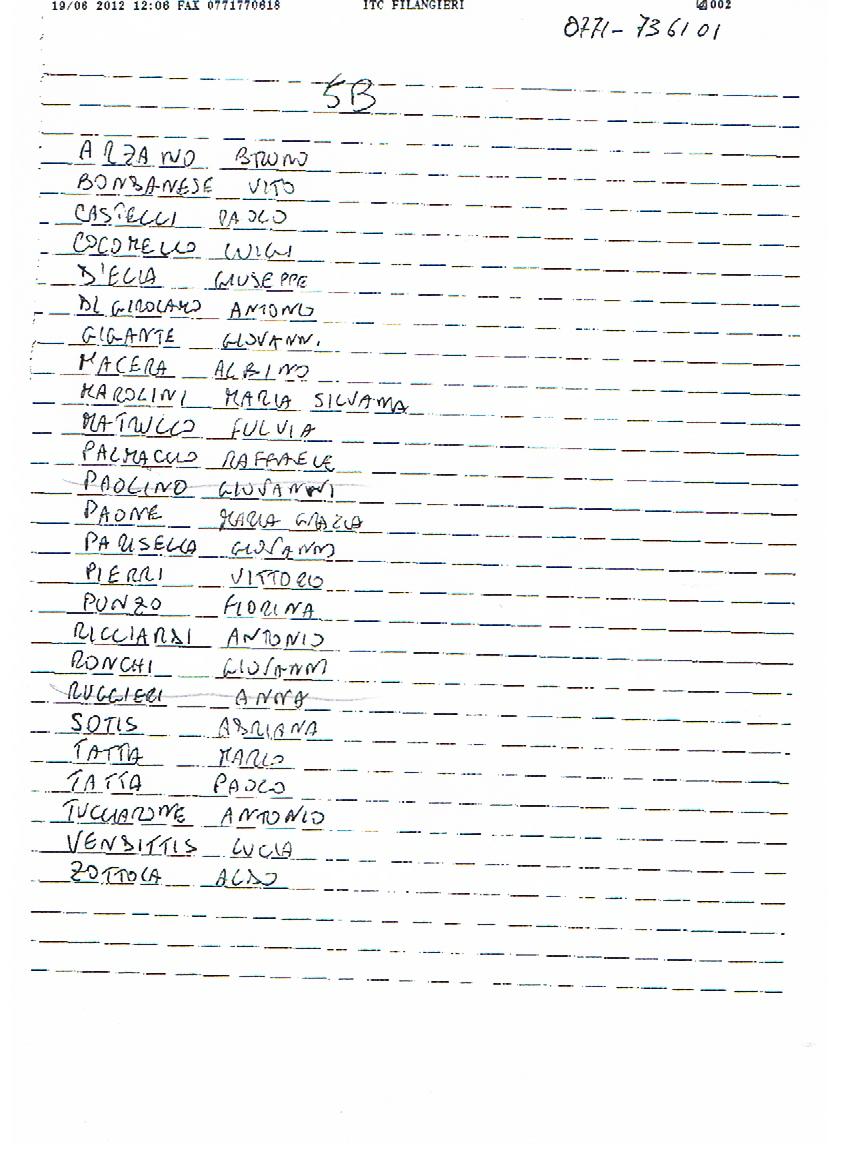 19/06 2012 12:06 FAX 0771770618 ITC FILANGIERI 002
0771-736101
5B
ARZANO BRUNO
BONBANESE VITO
CASTELLI PAOLO
COCOMELLO LUIGI
D'ELIA GIUSEPPE
DI GIROLAMO ANTONIO
GIGANTE GIOVANNI
MACERA ALBINO
MAROLINI MARIA SILVANA
MATRULLO FULVIA
PALMACCIO RAFFAELE
PAOLINO GIOVANNI
PAONE MARIA GRAZIA
PARISELLA GIOVANNI
PIERRI VITTORIO
PUNZO FIORINA
RICCIARDI ANTONIO
RONCHI GIOVANNI
RUGGIERI ANNA
SOTIS ADRIANA
TATTA MARIO
TATTA PAOLO
TUCCIARONE ANTONIO
VENDITTIS LUCIA
ZOTTOLA ALDO